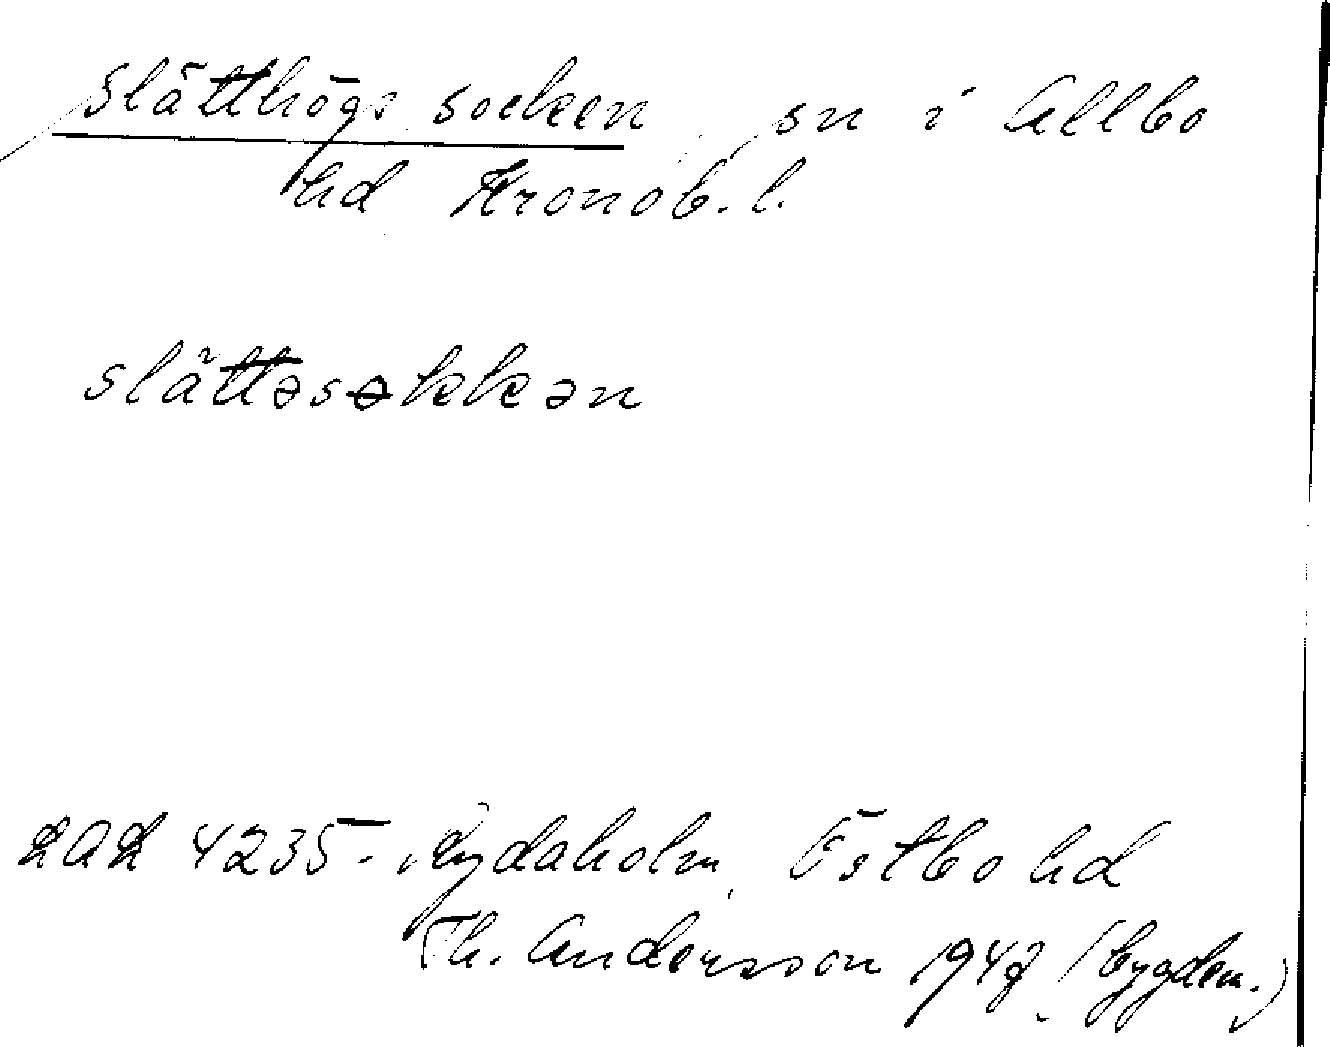 Slätthögs socken, sn i Allbo
hd Kronob. l.
slättəsɵkkən
LAL 4235 - Rydaholm, Östbo hd
Th. Andersson 1947 (bygdem.)